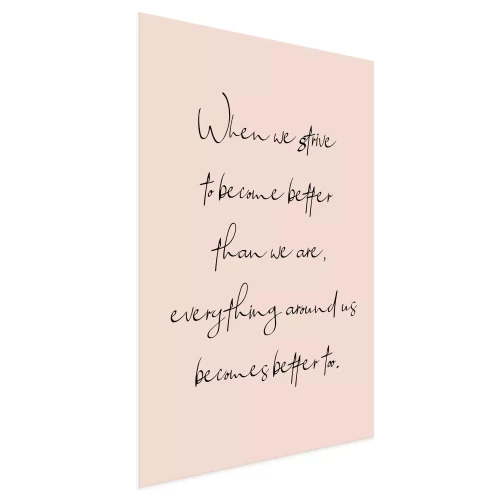 When we strive
to become better
than we are,
everything around us
becomes better too.